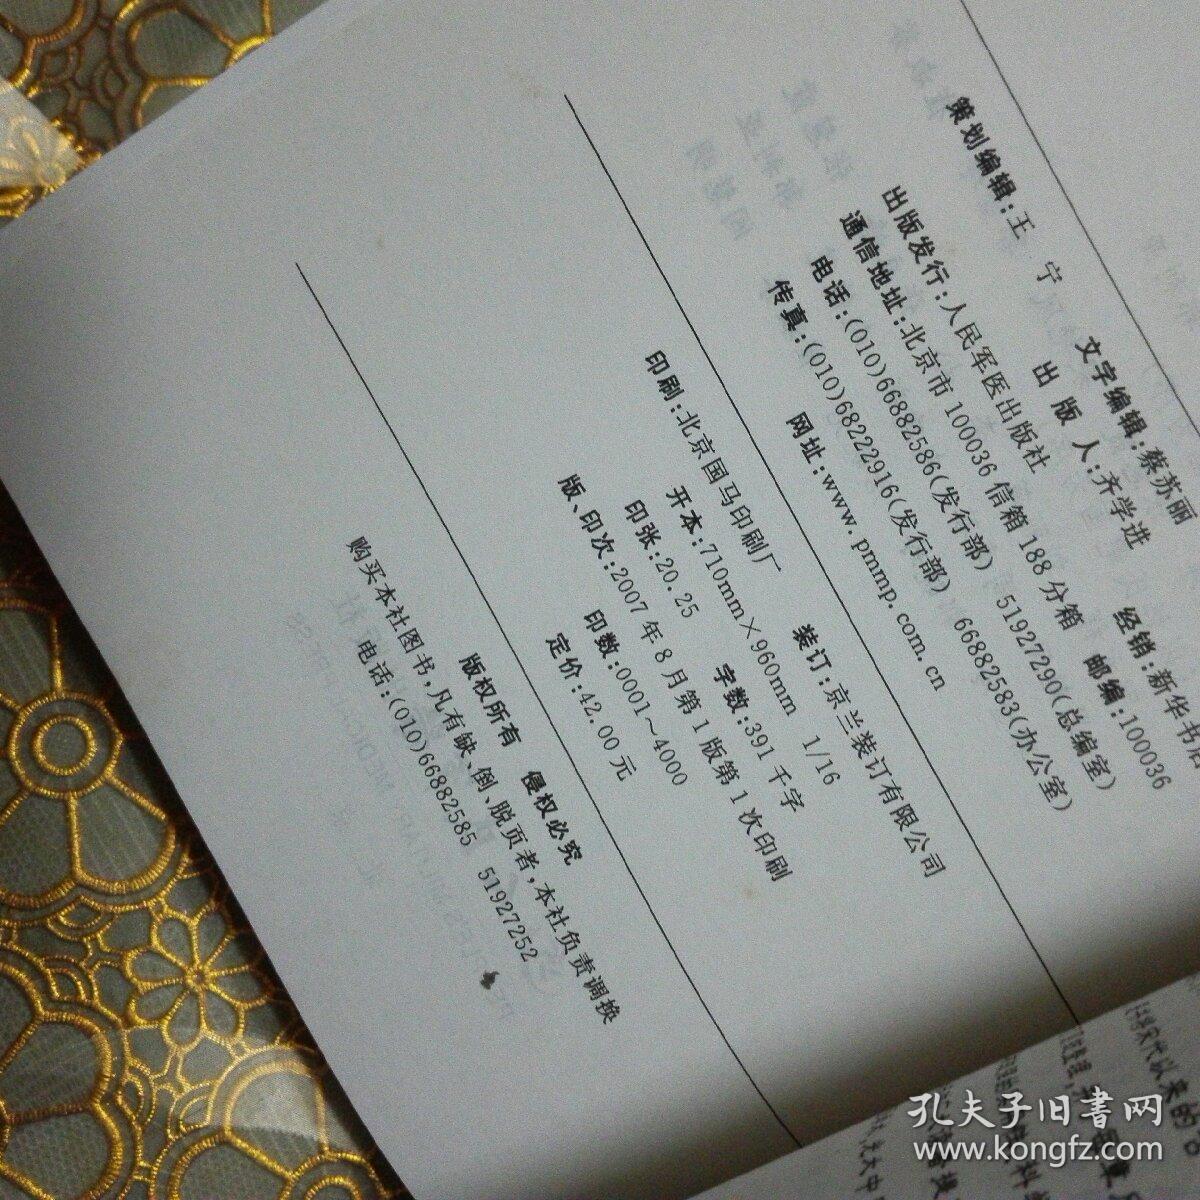 策划编辑:王 宁 文字编辑:蔡苏丽
出 版 人:齐学进
出版发行:人民军医出版社 经销:新华书
通信地址:北京市 100036 信箱 188 分箱 邮编:100036
电话:(010)66882586(发行部) 51927290(总编室)
传真:(010)68222916(发行部) 66882583(办公室)
网址:www.pmmp.com.cn
印刷:北京国马印刷厂 装订:京兰装订有限公司
开本:710mm×960mm 1/16
印张:20.25 字数:391 千字
版、印次:2007 年 8 月第 1 版第 1 次印刷
印数:0001~4000
定价:42.00 元
版权所有 侵权必究
购买本社图书,凡有缺、倒、脱页者,本社负责调换
电话:(010)66882585 51927252
宋代以来的
孔夫子旧書网
www.kongfz.com